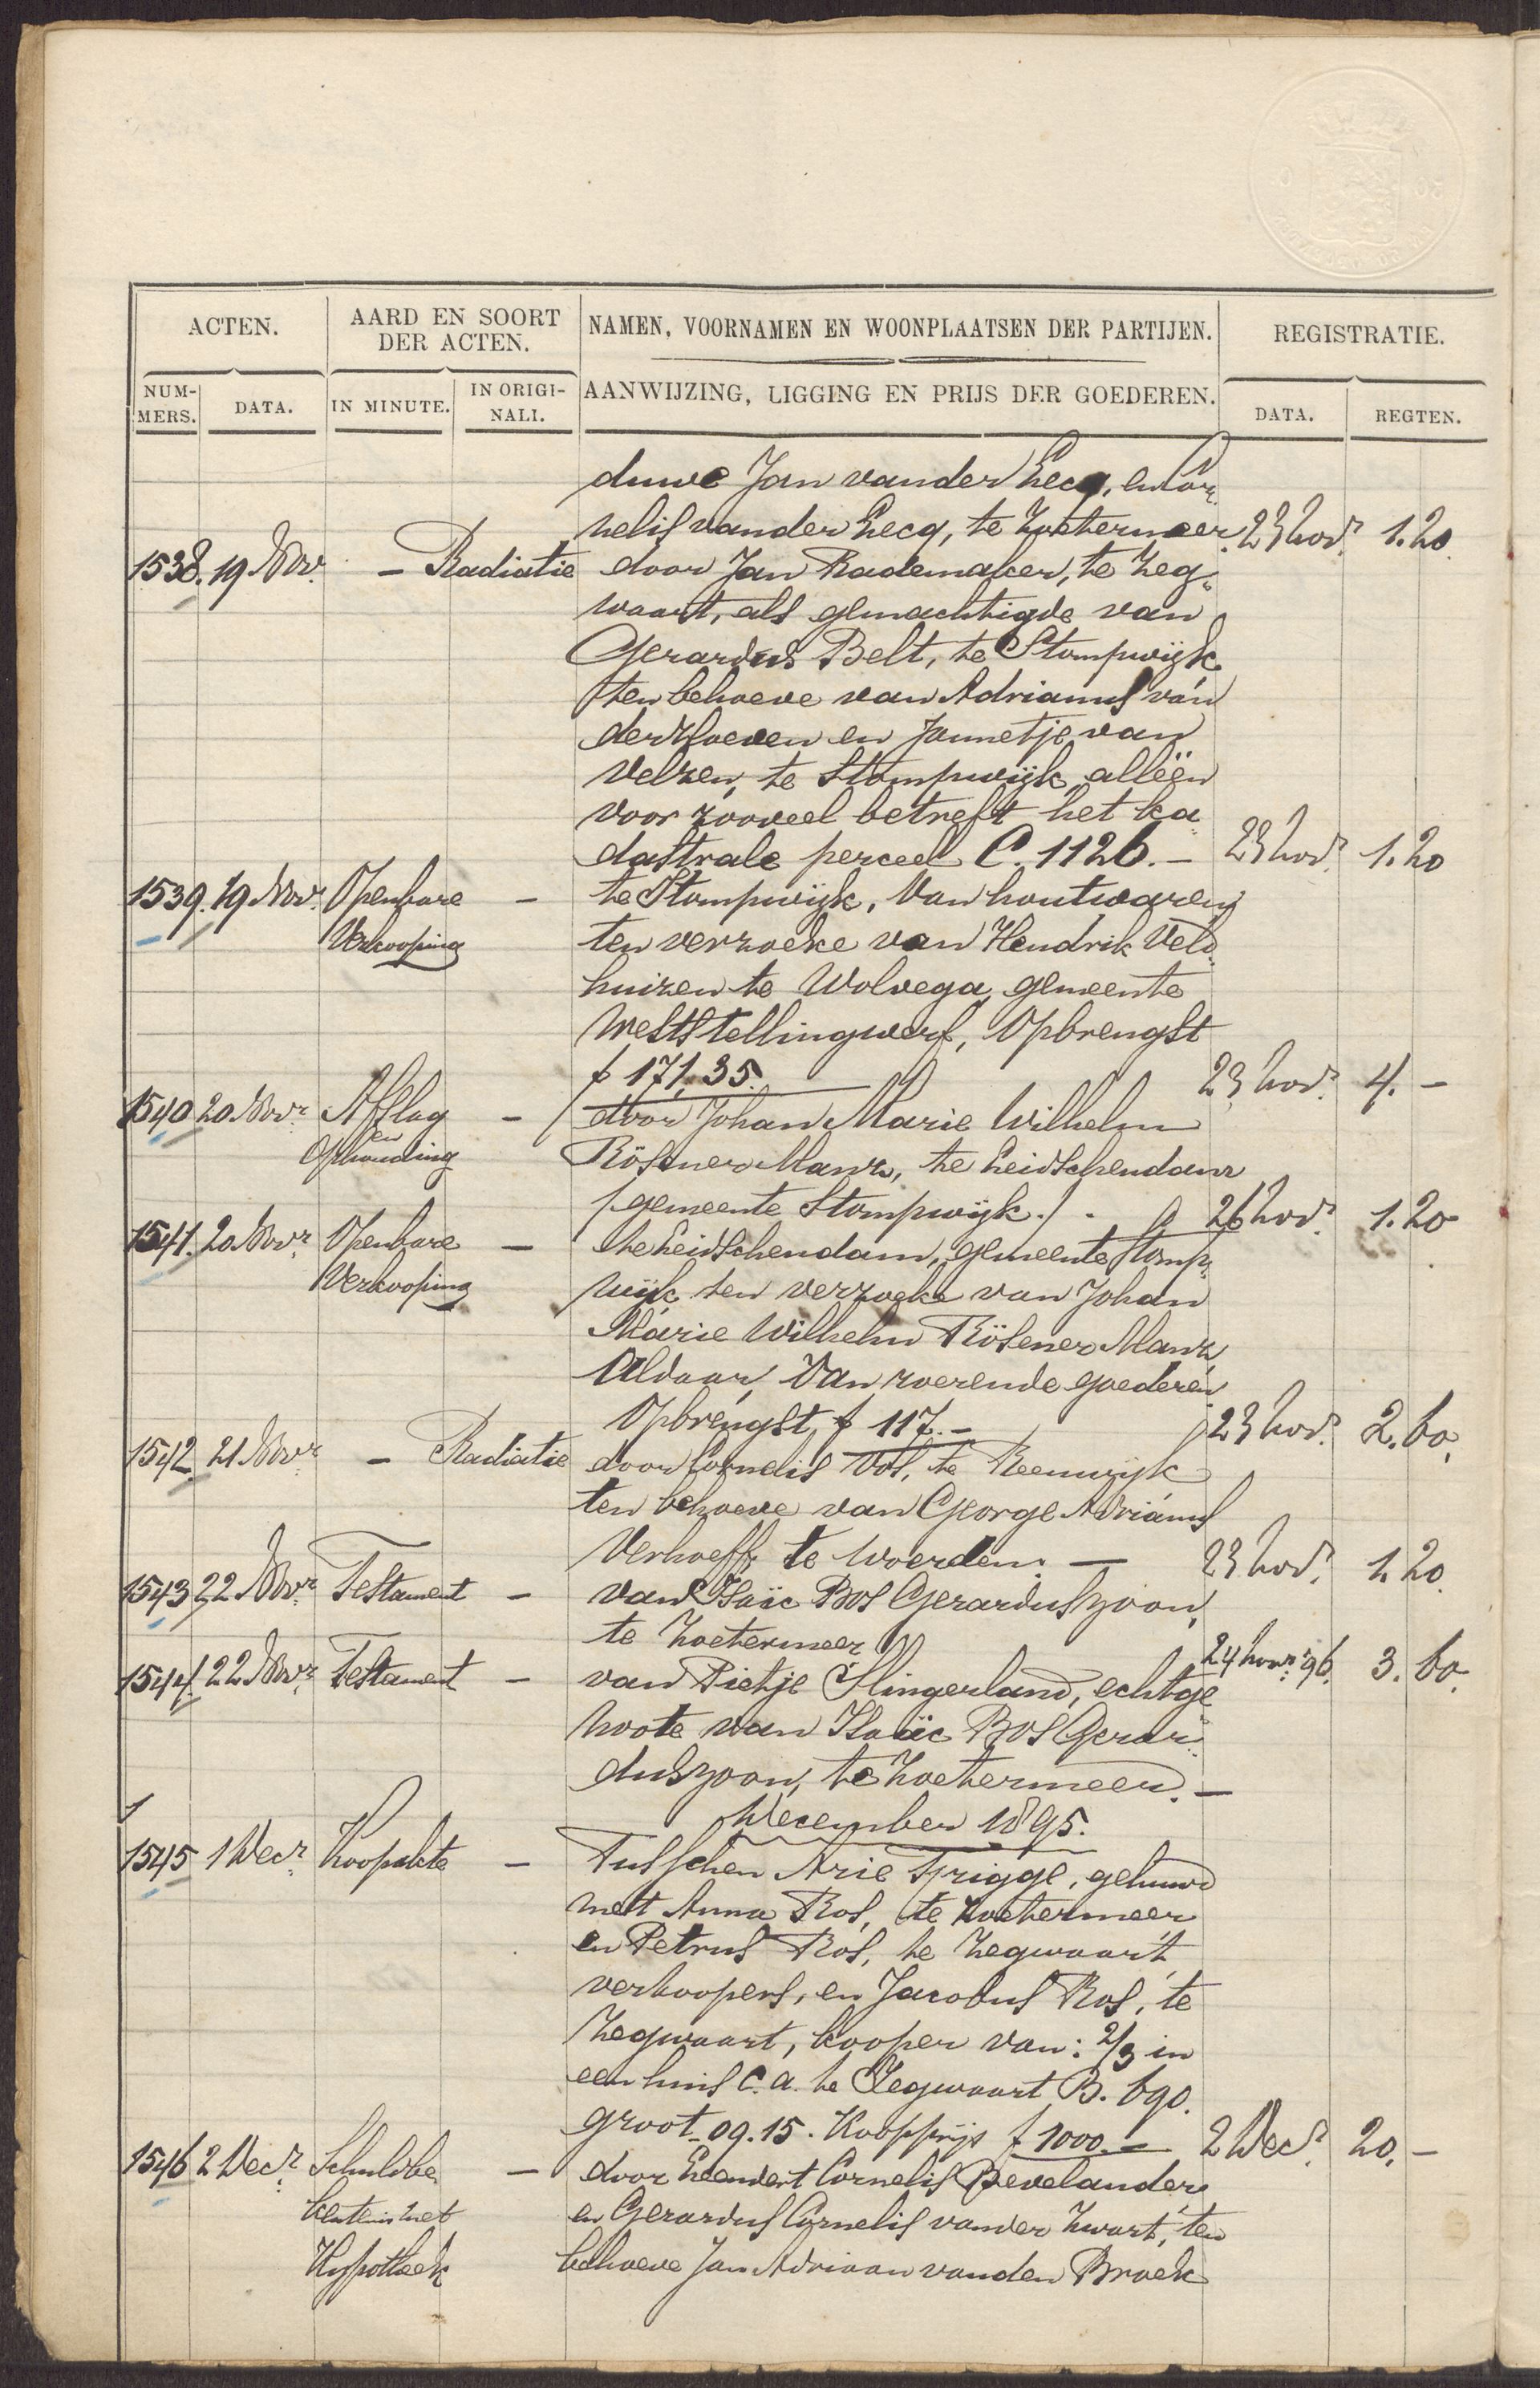 ACTEN.
AARD EN SOORT
DER ACTEN.
NAMEN, VOORNAMEN EN WOONPLAATSEN DER PARTIJEN.
REGISTRATIE.
NUM-
MERS.
DATA.
IN MINUTE.
IN ORIGI-
NALI.
AANWIJZING, LIGGING EN PRIJS DER GOEDEREN.
DATA.
REGTEN.
duwe Jan van der Lecq, en Cor„
nelis van der Lecq, te Zoetermeer. 23 Novr 1.20
1538. 19 Novr. - Radiatie door Jan Rademaker, te Zeg„
waart, als gemachtigde van
Gerardus Belt, te Stompwijk
ten behoeve van Adrianus van
der Hoeven en Jannetje van
Velzen, te Stompwijk, alleen
voor zooveel betreft het ka
dastrale perceel C. 1126. - 23 Novr 1.20
1539. 19 Novr. Openbare - te Stompwijk, van houtwaren
Verkooping ten verzoeke van Hendrik Veld„
huizen te Wolvega, gemeente
Weststellingwerf, Opbrengst
f 171.35. 23 Novr 4.-
1540 20 Novr. Afslag - door Johan Marie Wilhelm
en
Ophouding Rösener Manz, te Leidschendam
/gemeente Stompwijk./. 26 Novr 1.20
1541. 20 Novr. Openbare - te Leidschendam, gemeente Stomp„
Verkooping wijk ten verzoeke van Johan
Marie Wilhelm Rösener Manz,
Aldaar, van roerende goederen
Opbrengst f 117.- 23 Novr. 2.60.
1542 21 Novr - Radiatie door Cornelis Vos, te Reeuwijk
ten behoeve van George Adrianus
Verhoeff, te Woerden. - 23 Novr. 1.20.
1543 22 Novr Testament - van Isaïc Bos Gerarduszoon,
te Zoetermeer 24 Novr. 96. 3.60.
1544. 22 Novr. Testament - van Pietje Slingerland, echtge
noote van Isaäc Bos Gerar„
duszoon, te Zoetermeer. -
December 1895.
1545 1 Decr. Koopakte - Tusschen Arie Sprigge, gehuwd
met Anna Ros, te Zoetermeer
en Petrus Ros, te Zegwaart,
verkoopers, en Jacobus Ros, te
Zegwaart, kooper van: 2/3 in
een huis c.a. te Zegwaart B. 690.
groot -.09.15. Koopprijs f 1000.- 2 Decr. 20.-
1546 2 Decr. Schuldbe - door Leendert Cornelis Bevelander
kentenis met en Gerardus Cornelis van der Zwart, ten
Hypotheek behoeve Jan Adriaan van den Broek